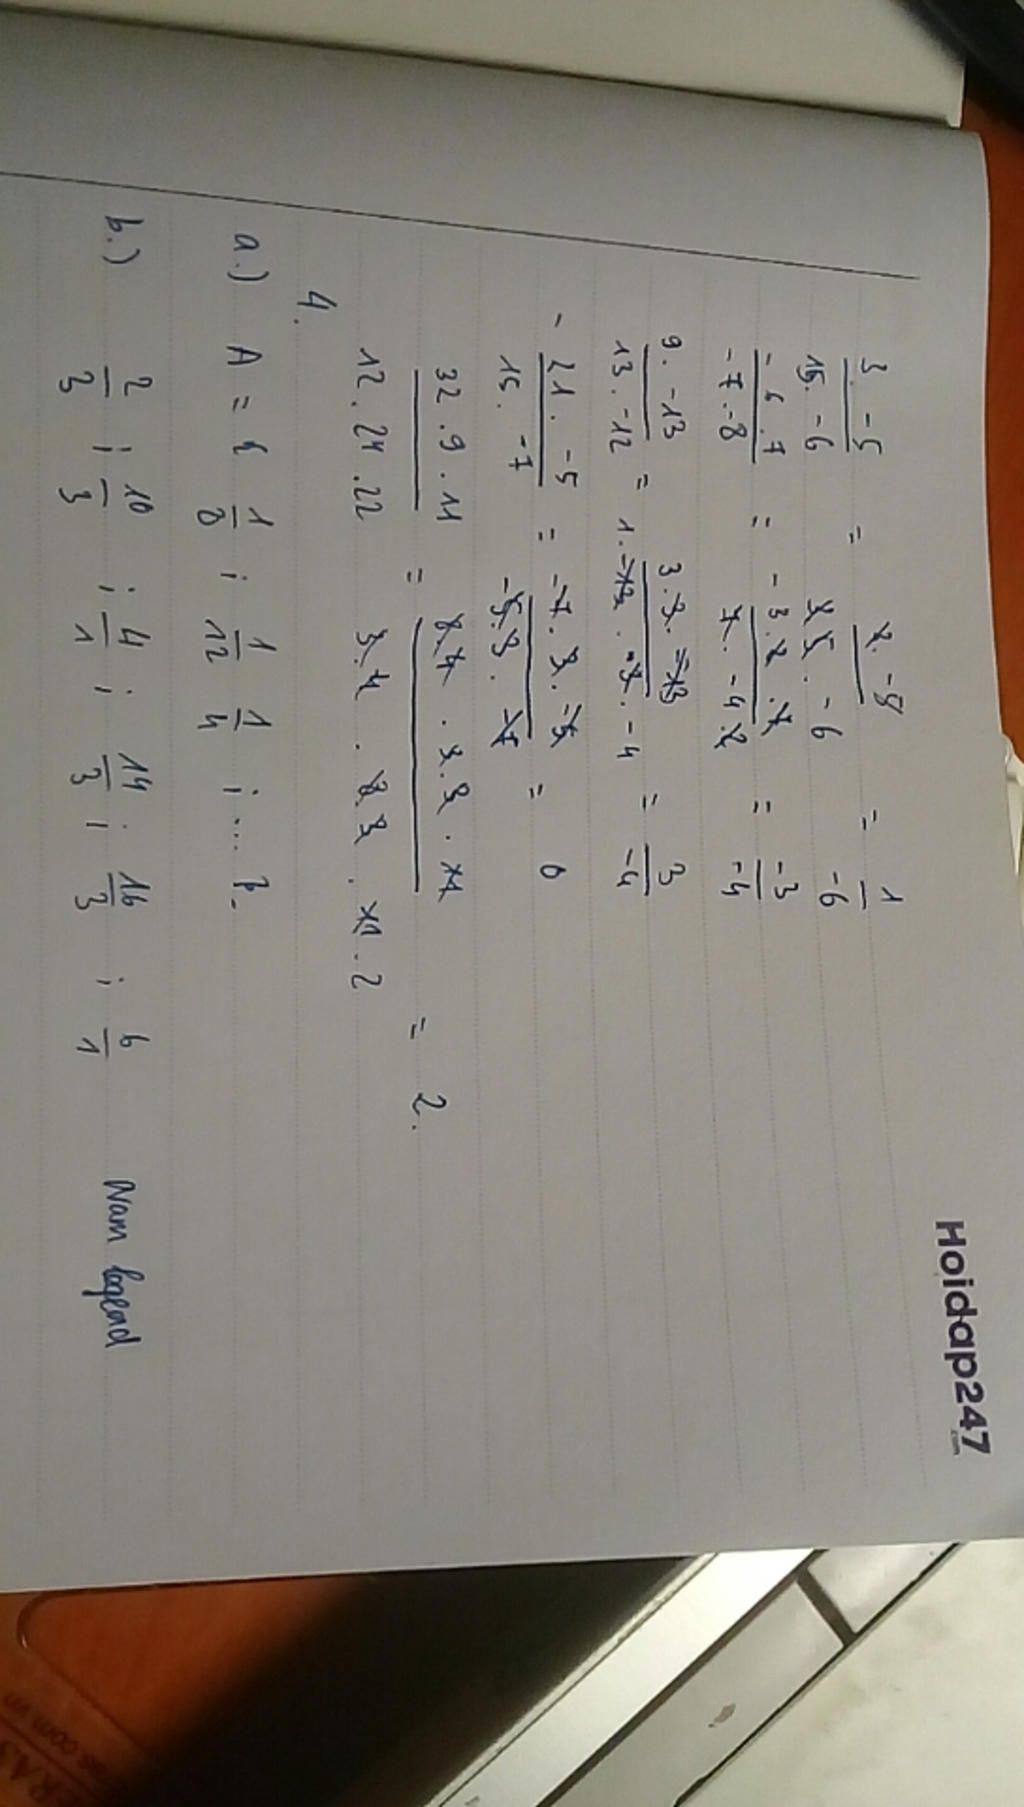 Hoidap247
.com
3 . -5 / 15 . -6 = 3 . -5 / 3 5 . -6 = 1 / -6
- 6 . 7 / -7 . -8 = - 3 . 2 . 7 / 7 . -4 . 2 = -3 / -4
9 . -13 / 13 . -12 = 3 . 3 . -13 / 1 . -13 . -3 . -4 = 3 / -4
- 21 . -5 / 15 . -7 = -7 . 3 . -5 / -5 . 3 . -7 = 0
32 . 9 . 11 / 12 . 24 . 22 = 8 . 4 . 3 . 3 . 11 / 3 . 4 . 8 . 3 . 11 . 2 = 2.
4.
a.) A = { 1/8 ; 1/12 1/4 ; ... }.
b.) 2/3 ; 10/3 ; 4/1 ; 14/3 ; 16/3 ; 6/1 Nam legend